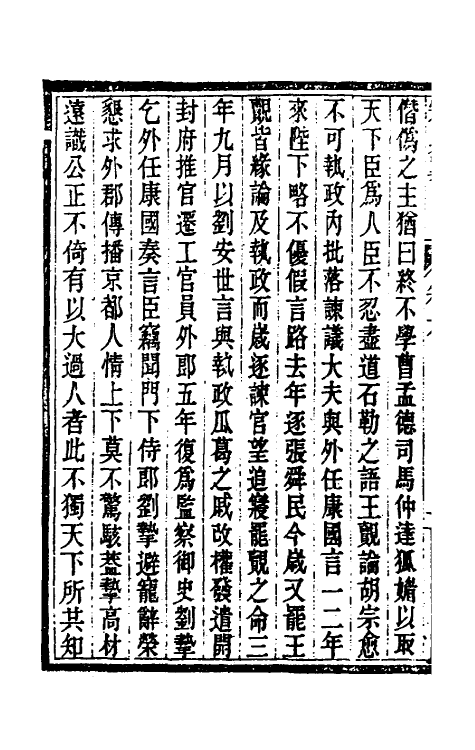 僭僞之主猶曰終不學曹孟德司馬仲達狐媚以取
天下臣爲人臣不忍盡道石勒之語王覿論胡宗愈
不可執政內批落諫議大夫與外任康國言一二年
來陛下略不優假言路去年逐張舜民今歲又罷王
覿皆緣論及執政而歲逐諫官望追寢罷覿之命三
年九月以劉安世言與執政瓜葛之戚改權發遣開
封府推官遷工官員外郎五年復爲監察御史劉摯
乞外任康國奏言臣竊聞門下侍郎劉摯避寵辭榮
懇求外郡傳播京都人情上下莫不驚駭葢摯高材
遠識公正不倚有以大過人者此不獨天下所共知